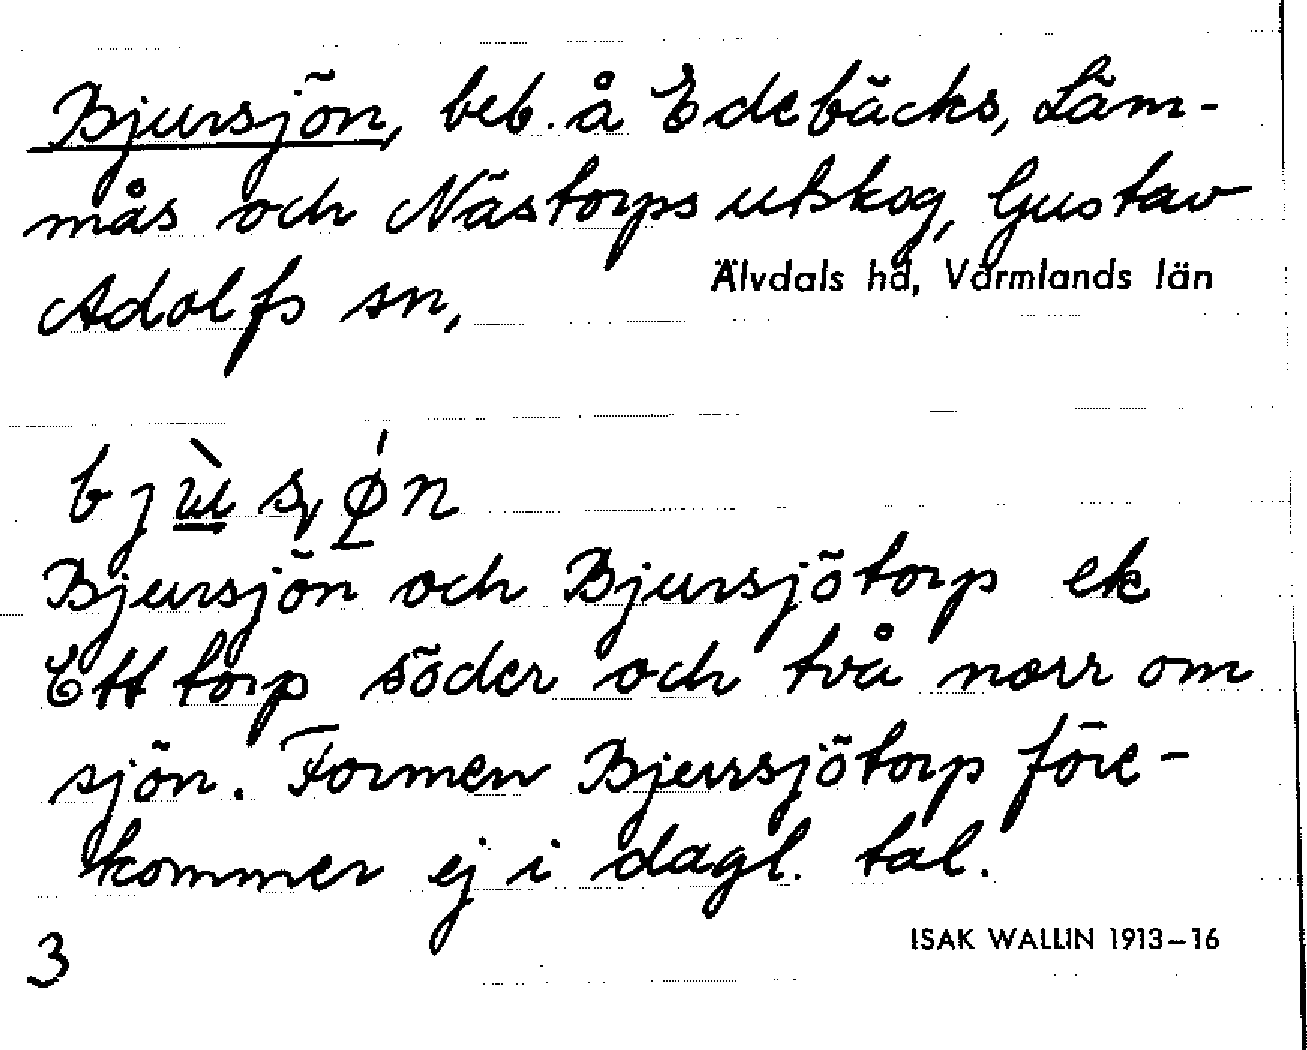 Bjursjön, beb. å Edebäcks, Läm-
mås och Nästorps utskog, Gustav
Adolfs sn,
Älvdals hd, Värmlands län
Bjursjön och Bjursjötorp ek
Ett torp söder och två norr om
sjön. Formen Bjursjötorp före-
kommer ej i dagl. tal.
3
ISAK WALLIN 1913–16